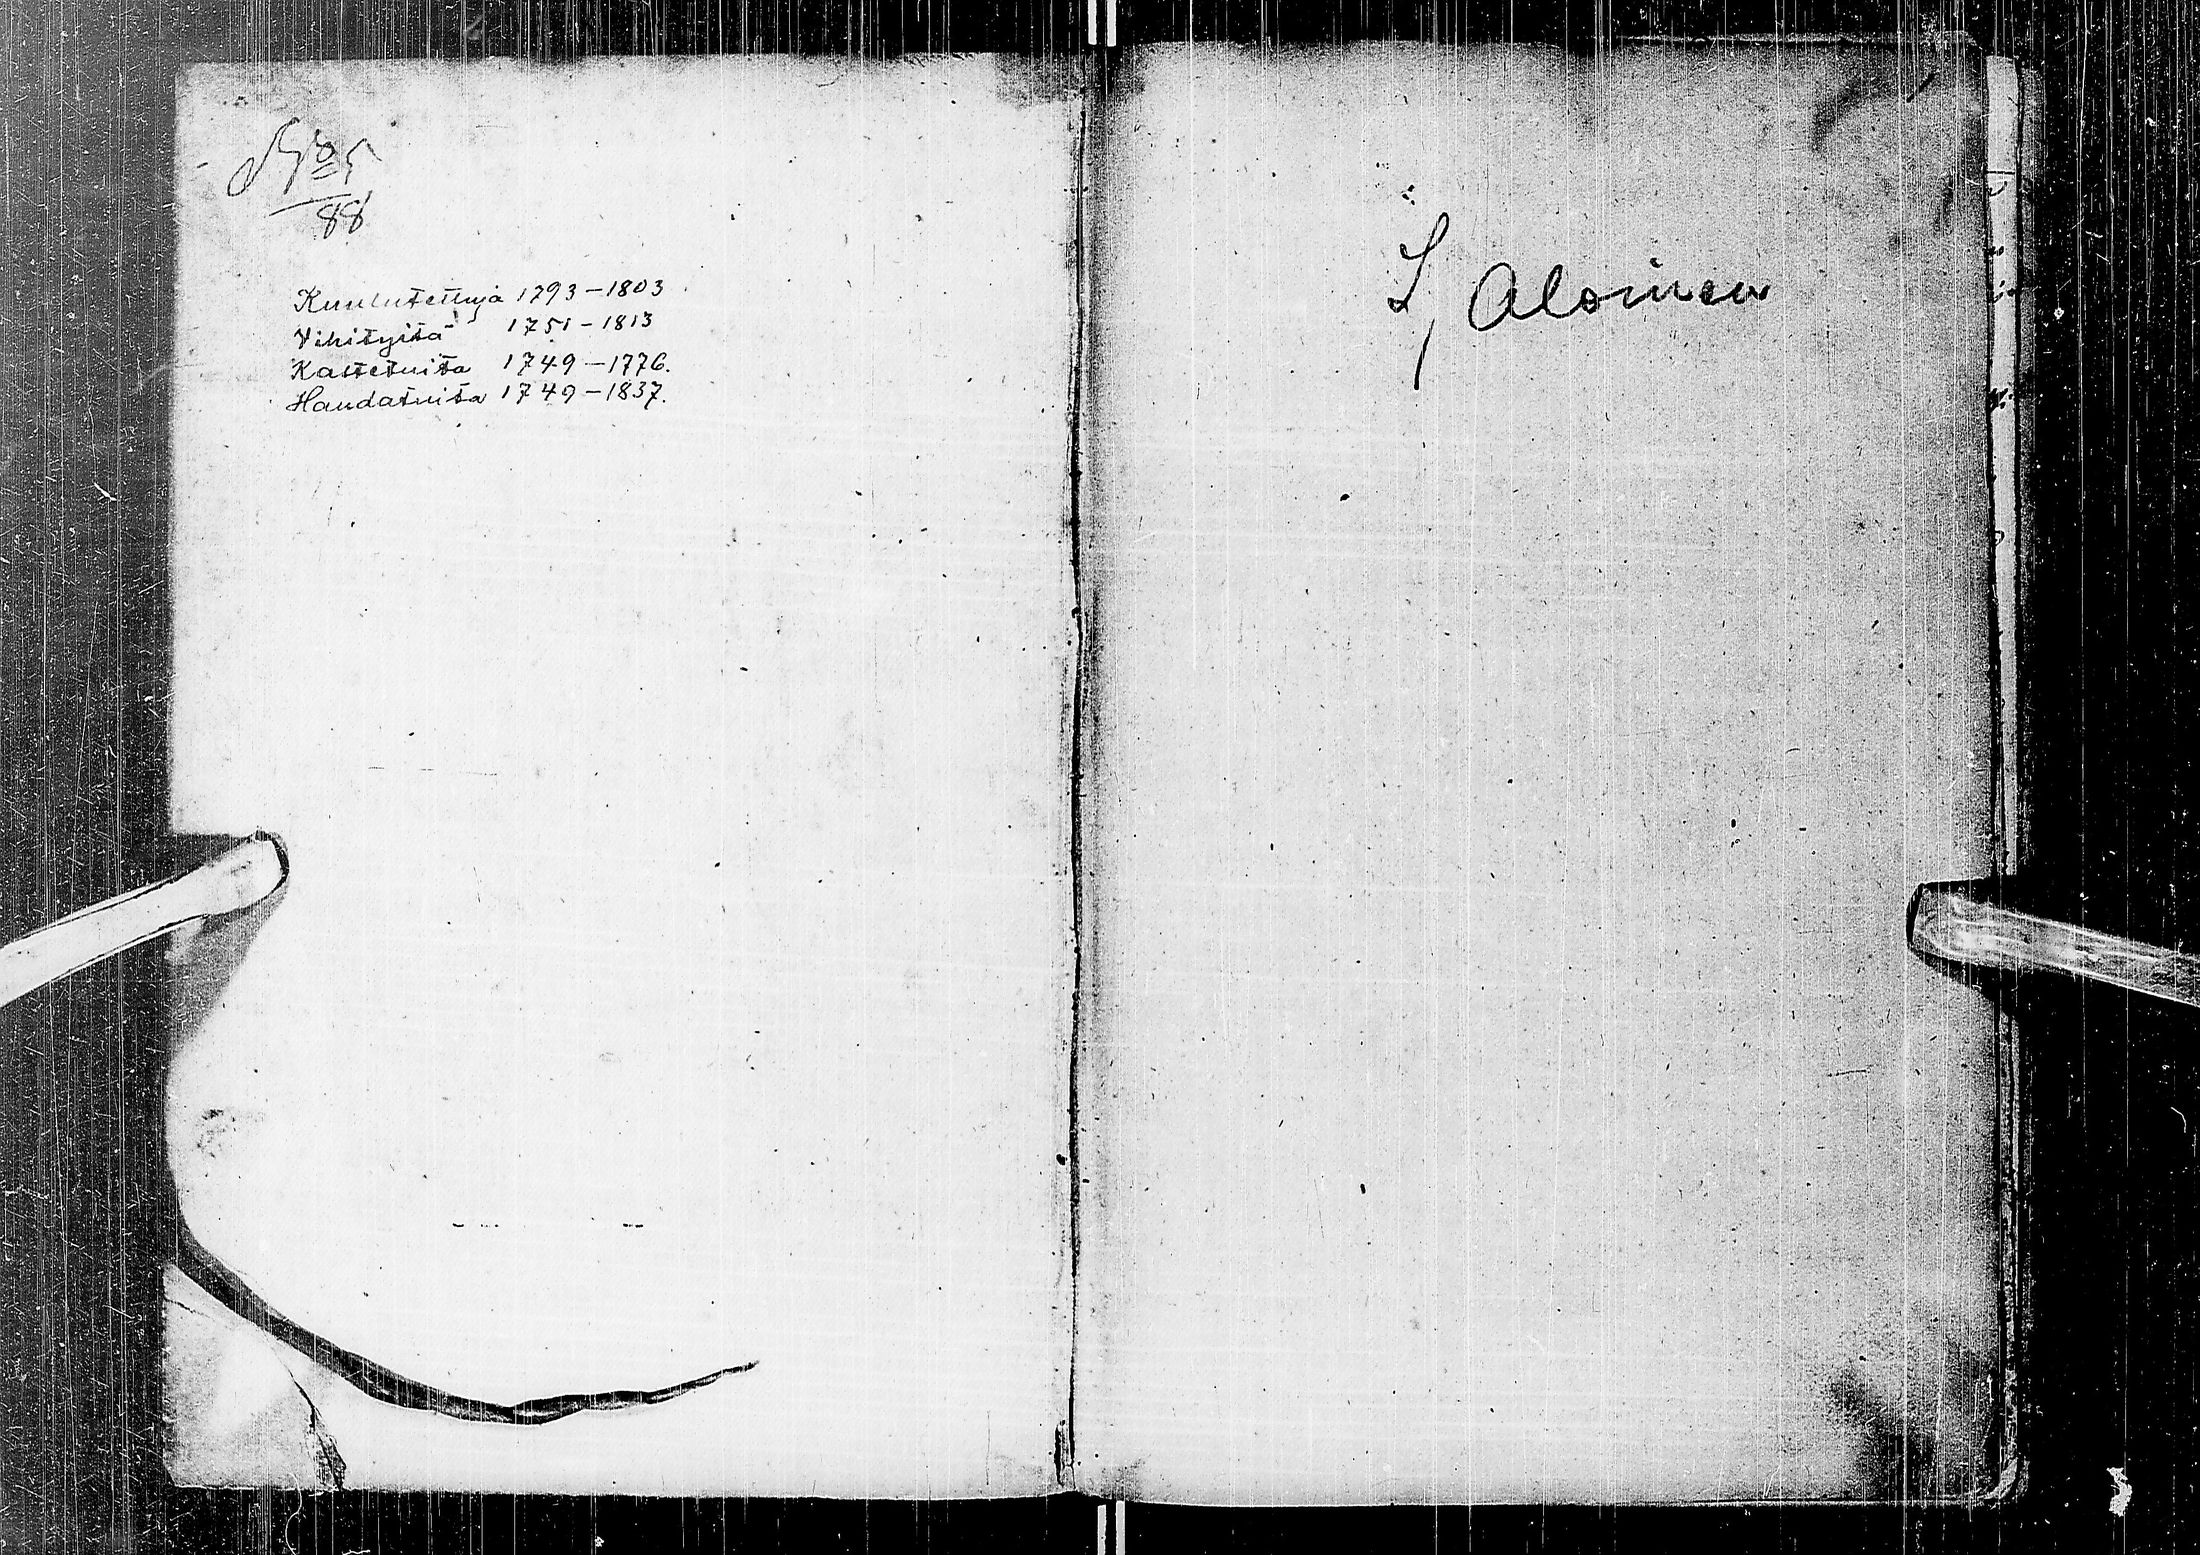 88
Kuulutettuja 1793-1803
Vihityitä 1751-1813
Kastetuita 1749-1776.
Haudatuita 1749-1837.
L, Aloinen